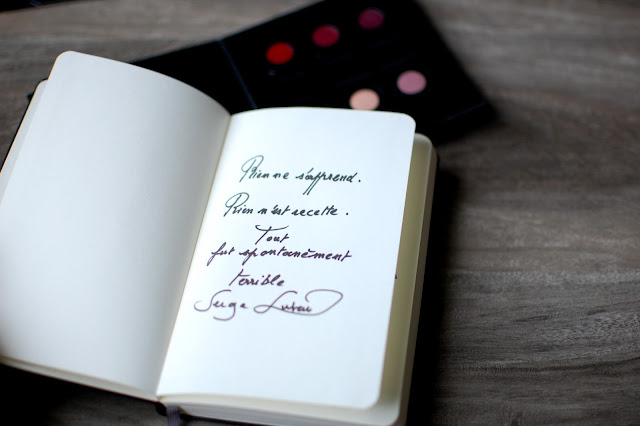 Rien ne s'apprend.
Rien n'est recette.
Tout
fut spontanément
terrible
Serge Lutens